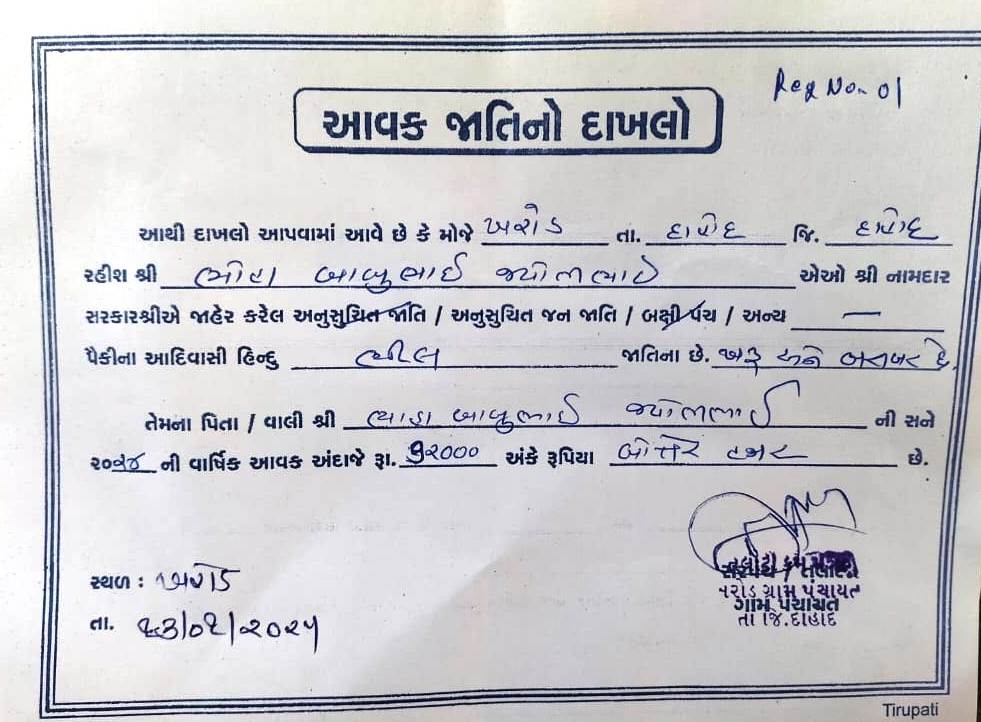 Reg No- 01
આવક જાતિનો દાખલો
આથી દાખલો આપવામાં આવે છે કે મોજે ખરોડ તા. દાહોદ જિ. દાહોદ
રહીશ શ્રી બાબુભાઈ એઓ શ્રી નામદાર
સરકારશ્રીએ જાહેર કરેલ અનુસુચિત જાતિ / અનુસુચિત જન જાતિ / બક્ષી પંચ / અન્ય —
પૈકીના આદિવાસી હિન્દુ ભીલ જાતિના છે. ખરૂ અને બરાબર છે.
તેમના પિતા / વાલી શ્રી બાબુભાઈ ની સને
૨૦૨૪ ની વાર્ષિક આવક અંદાજે રૂા. ૭૨૦૦૦ અંકે રૂપિયા બોત્તેર હજાર છે.
સ્થળ : ખરોડ
તા. ૨૩/૦૧/૨૦૨૫
સરપંચ / તલાટી
ખરોડ ગ્રામ પંચાયત
ગ્રામ પંચાયત
તા જિ.દાહોદ
Tirupati